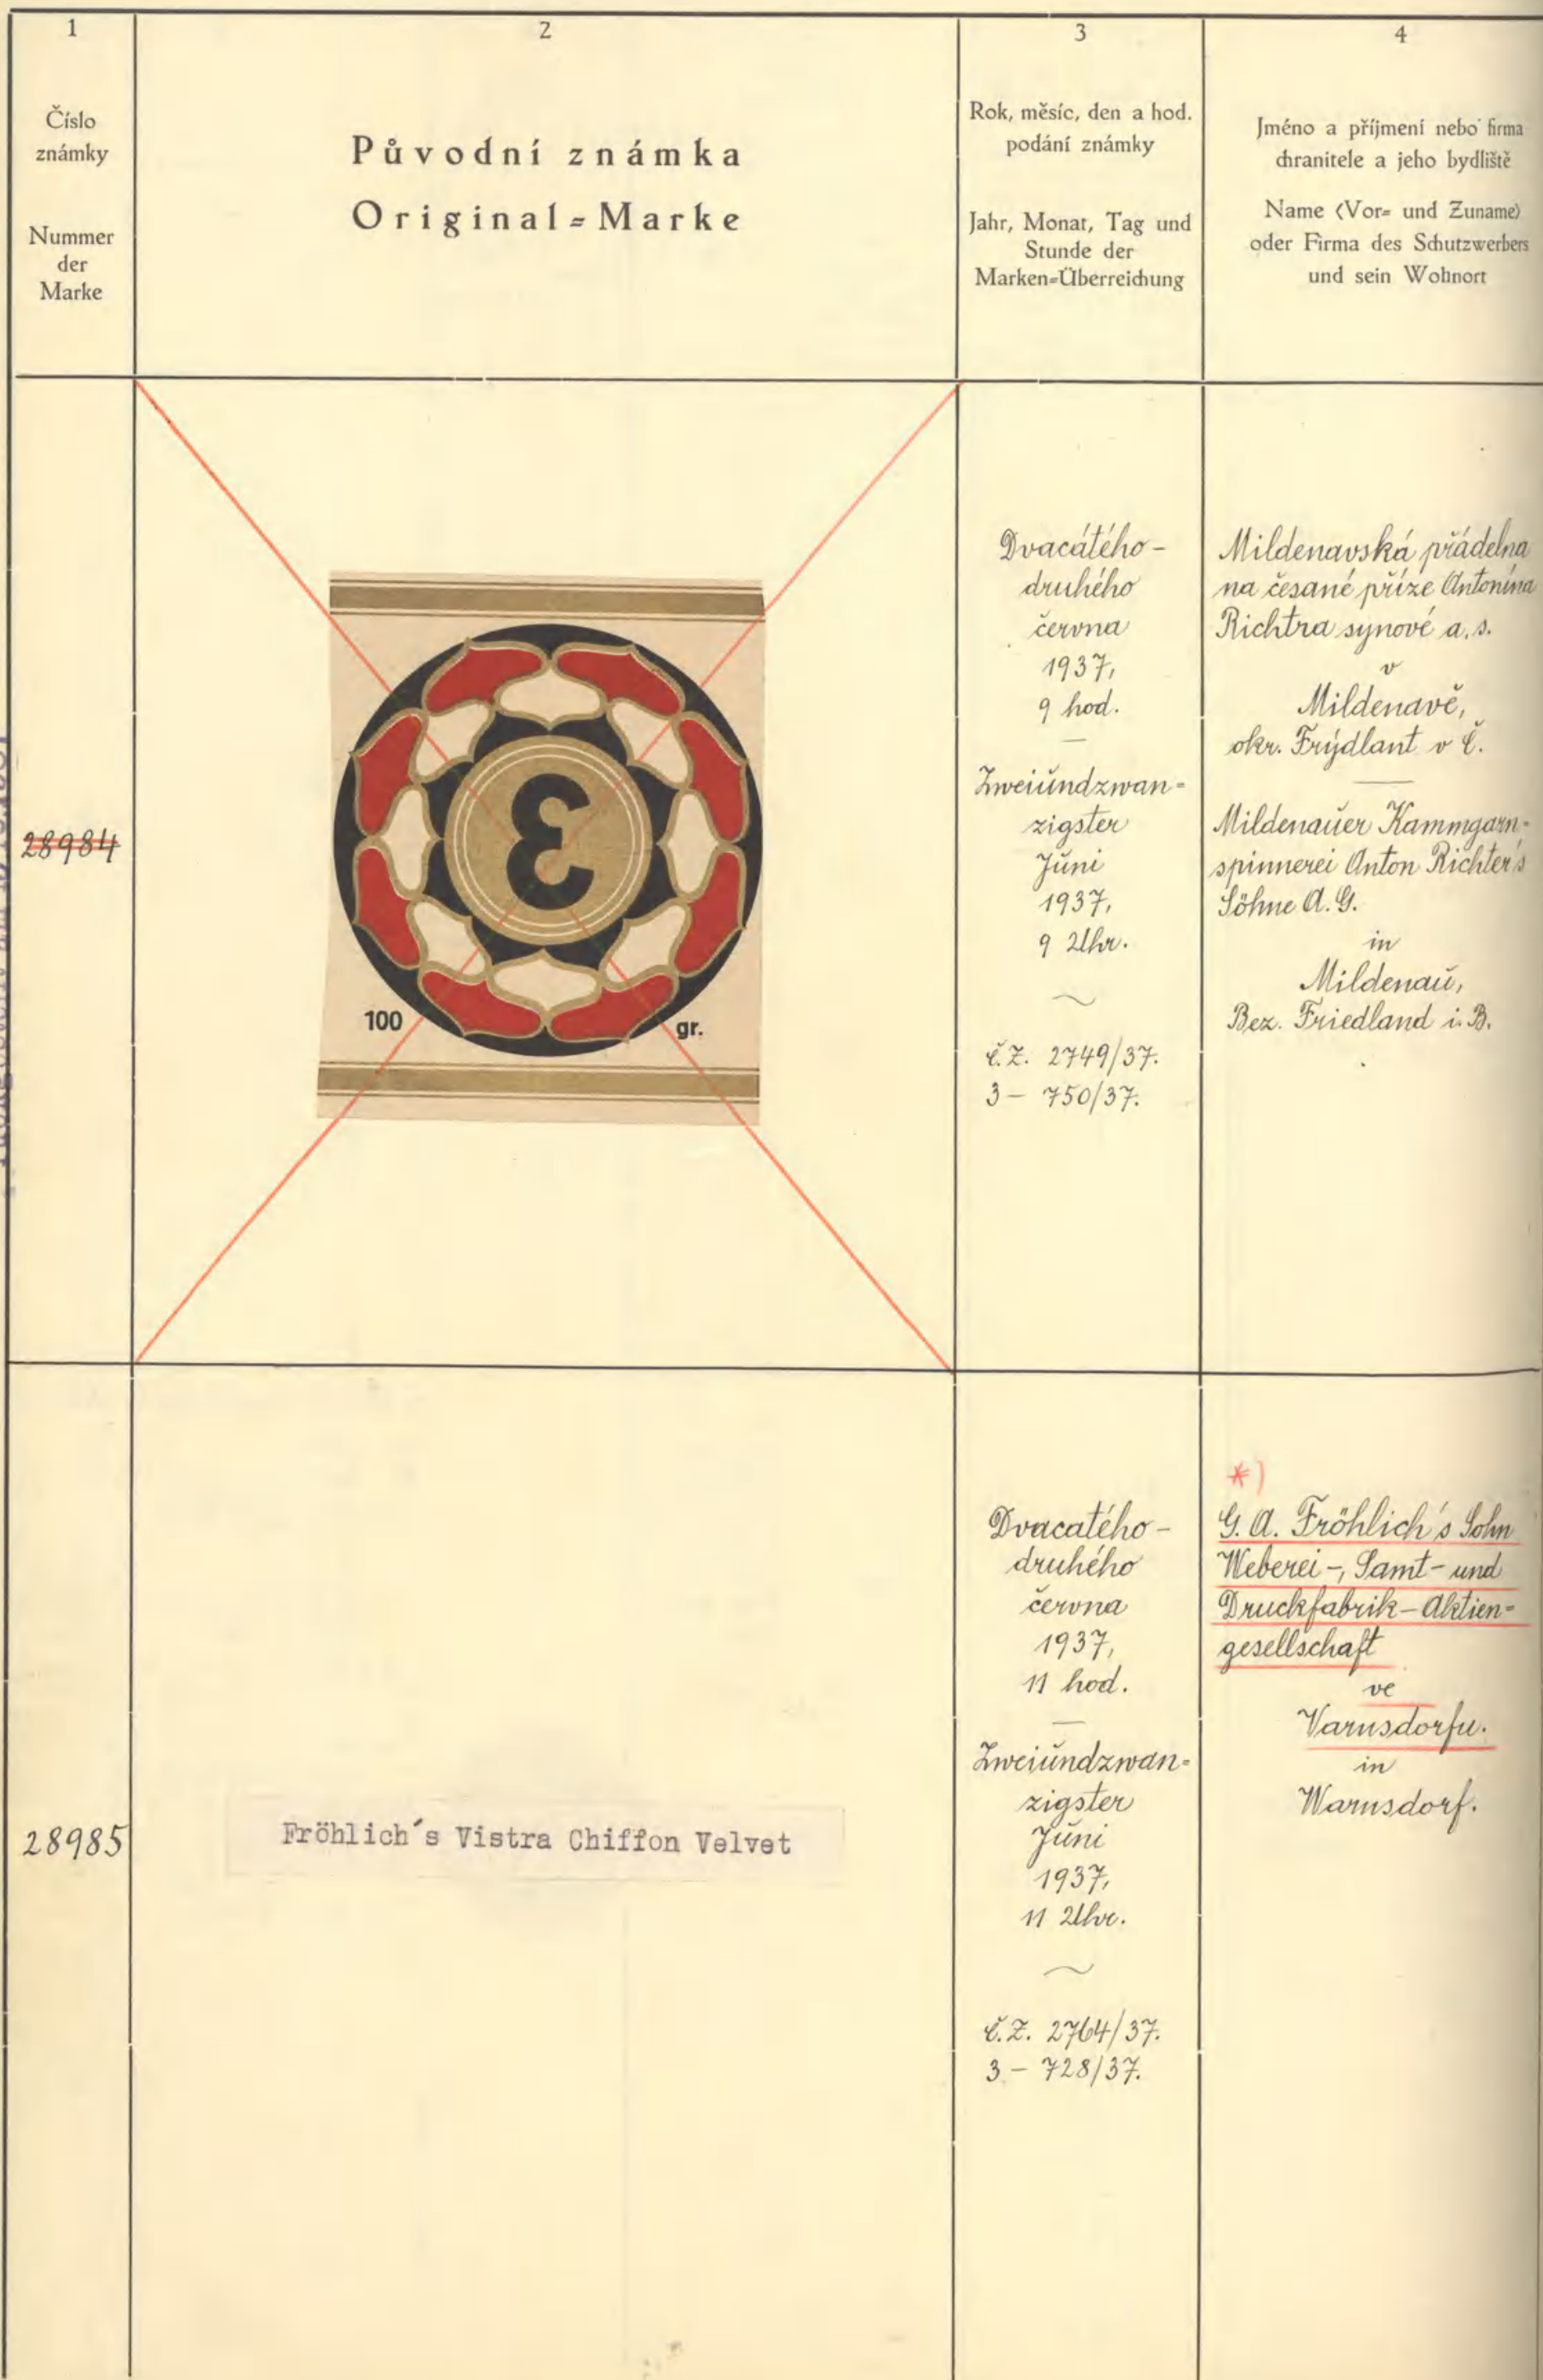 1
2
3
4
Číslo
známky
Nummer
der
Marke
Původní známka
Original=Marke
Rok, měsíc, den a hod.
podání známky
Jahr, Monat, Tag und
Stunde der
Marken=Überreichung
Jméno a příjmení nebo firma
chranitele a jeho bydliště
Name (Vor= und Zuname)
oder Firma des Schutzwerbers
und sein Wohnort
28984
3
100
gr.
Dvacátého-
druhého
června
1937,
9 hod.
Zweiundzwan=
zigster
Juni
1937,
9 Uhr.
č.Z. 2749/37.
3 - 750/37.
Mildenavská přádelna
na česané příze Antonína
Richtra synové a.s.
v
Mildenavě,
okr. Frýdlant v Č.
Mildenauer Kammgarn=
spinnerei Anton Richter's
Söhne A.G.
in
Mildenau,
Bez. Friedland i. B.
28985
Fröhlich´s Vistra Chiffon Velvet
Dvacatého-
druhého
června
1937,
11 hod.
Zweiundzwan=
zigster
Juni
1937,
11 Uhr.
č.Z. 2764/37.
3 - 728/37.
*)
G. A. Fröhlich's Sohn
Weberei-, Samt- und
Druckfabrik-Aktien=
gesellschaft
ve
Varnsdorfu.
in
Warnsdorf.